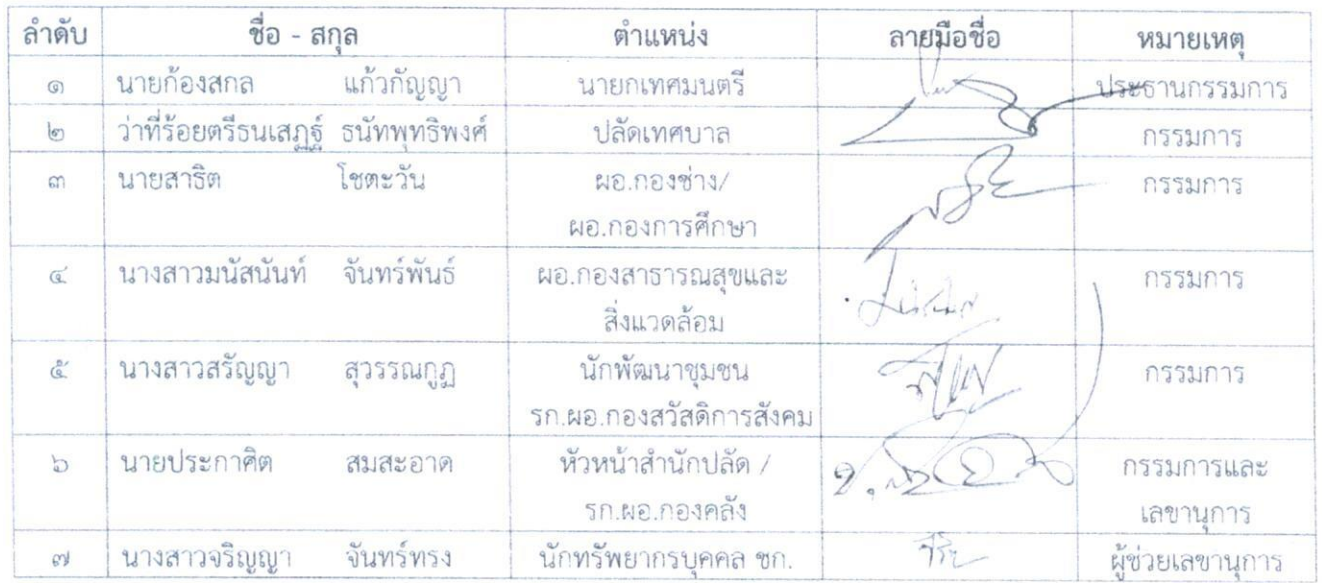 ลำดับ ชื่อ - สกุล ตำแหน่ง ลายมือชื่อ หมายเหตุ
๑ นายก้องสกล แก้วกัญญา นายกเทศมนตรี ประธานกรรมการ
๒ ว่าที่ร้อยตรีธนเสฏฐ์ ธนัทพุทธิพงศ์ ปลัดเทศบาล กรรมการ
๓ นายสาธิต โชตะวัน ผอ.กองช่าง/ กรรมการ
ผอ.กองการศึกษา
๔ นางสาวมนัสนันท์ จันทร์พันธ์ ผอ.กองสาธารณสุขและ กรรมการ
สิ่งแวดล้อม
๕ นางสาวสรัญญา สุวรรณกูฏ นักพัฒนาชุมชน กรรมการ
รก.ผอ.กองสวัสดิการสังคม
๖ นายประกาศิต สมสะอาด หัวหน้าสำนักปลัด / กรรมการและ
รก.ผอ.กองคลัง เลขานุการ
๗ นางสาวจริญญา จันทร์ทรง นักทรัพยากรบุคคล ชก. ผู้ช่วยเลขานุการ